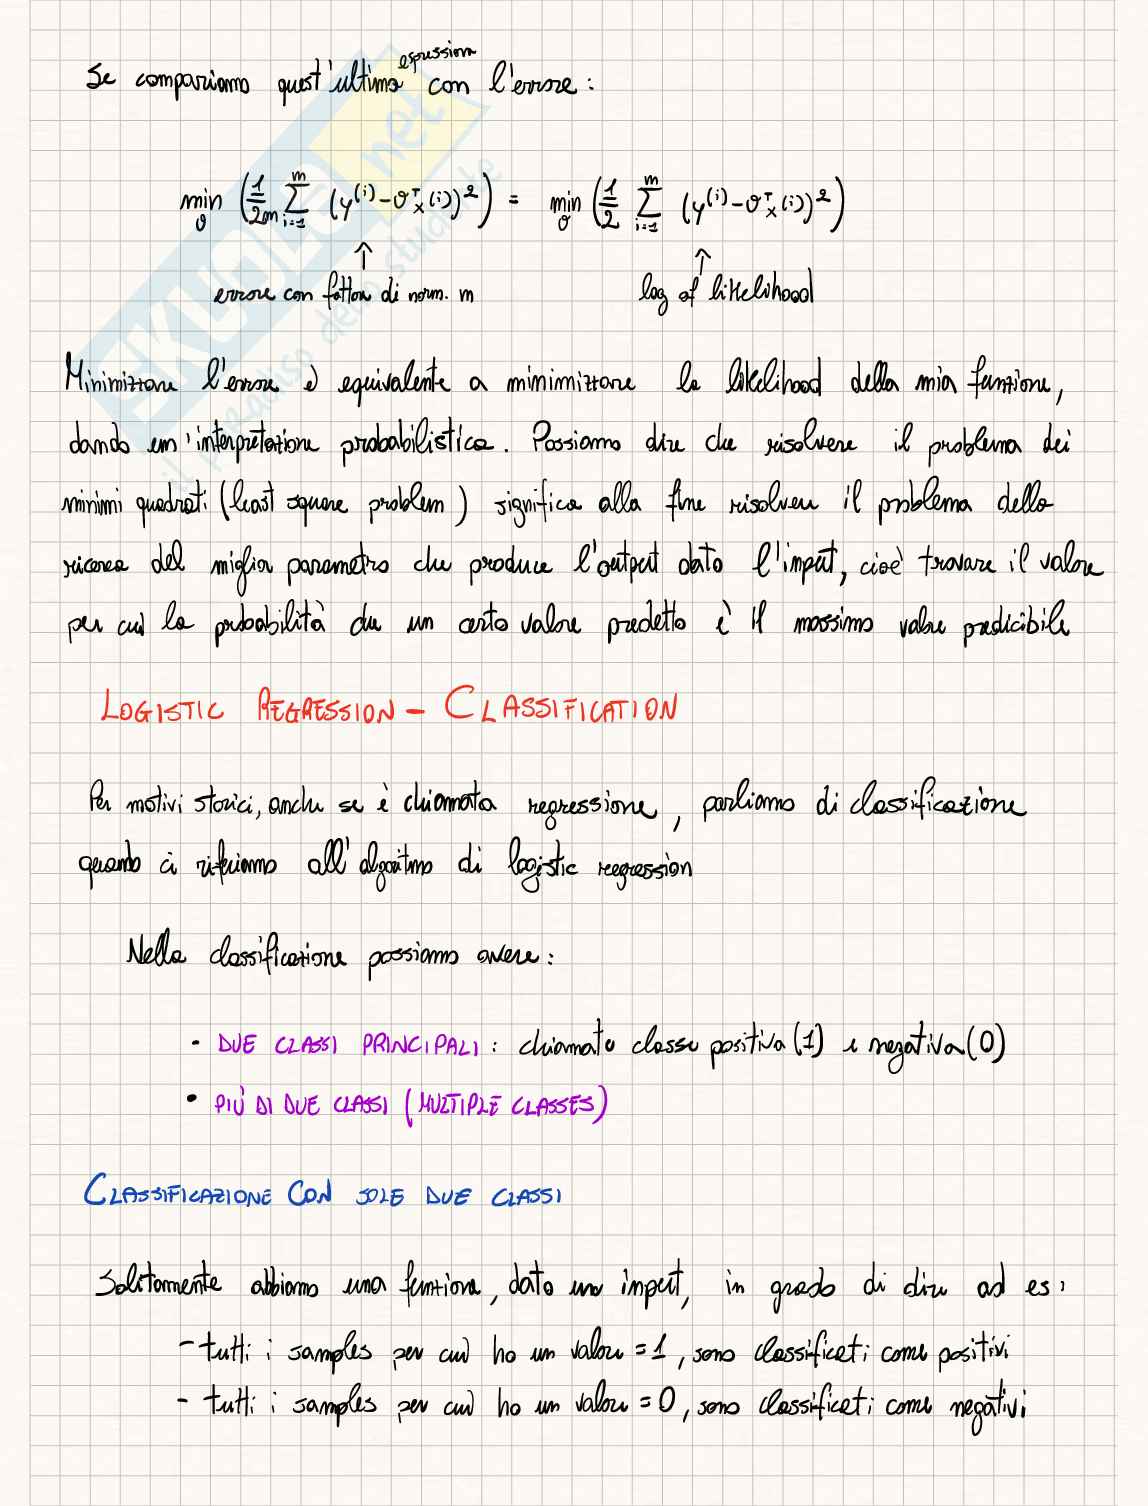 Se compariamo quest'ultima espressione con l'errore:
min θ (1/2m Σ i=1 m (y⁽ⁱ⁾-θᵀx⁽ⁱ⁾)²) = min θ (1/2 Σ i=1 m (y⁽ⁱ⁾-θᵀx⁽ⁱ⁾)²)
↑ ↑
errore con fattore di norm. m log of likelihood
Minimizzare l'errore è equivalente a minimizzare la likelihood della mia funzione,
dando un'interpretazione probabilistica. Possiamo dire che risolvere il problema dei
minimi quadrati (least square problem) significa alla fine risolvere il problema della
ricerca del miglior parametro che produce l'output dato l'input, cioè trovare il valore
per cui la probabilità che un certo valore predetto è il massimo valore predicibile
LOGISTIC REGRESSION - CLASSIFICATION
Per motivi storici, anche se è chiamata regressione, parliamo di classificazione
quando ci riferiamo all'algoritmo di logistic regression
Nella classificazione possiamo avere:
• DUE CLASSI PRINCIPALI: chiamate classe positiva (1) e negativa (0)
• PIÙ DI DUE CLASSI (MULTIPLE CLASSES)
CLASSIFICAZIONE CON SOLE DUE CLASSI
Solitamente abbiamo una funzione, dato un input, in grado di dire ad es:
- tutti i samples per cui ho un valore = 1, sono classificati come positivi
- tutti i samples per cui ho un valore = 0, sono classificati come negativi
SKUOLA.net
il paradiso dello studente